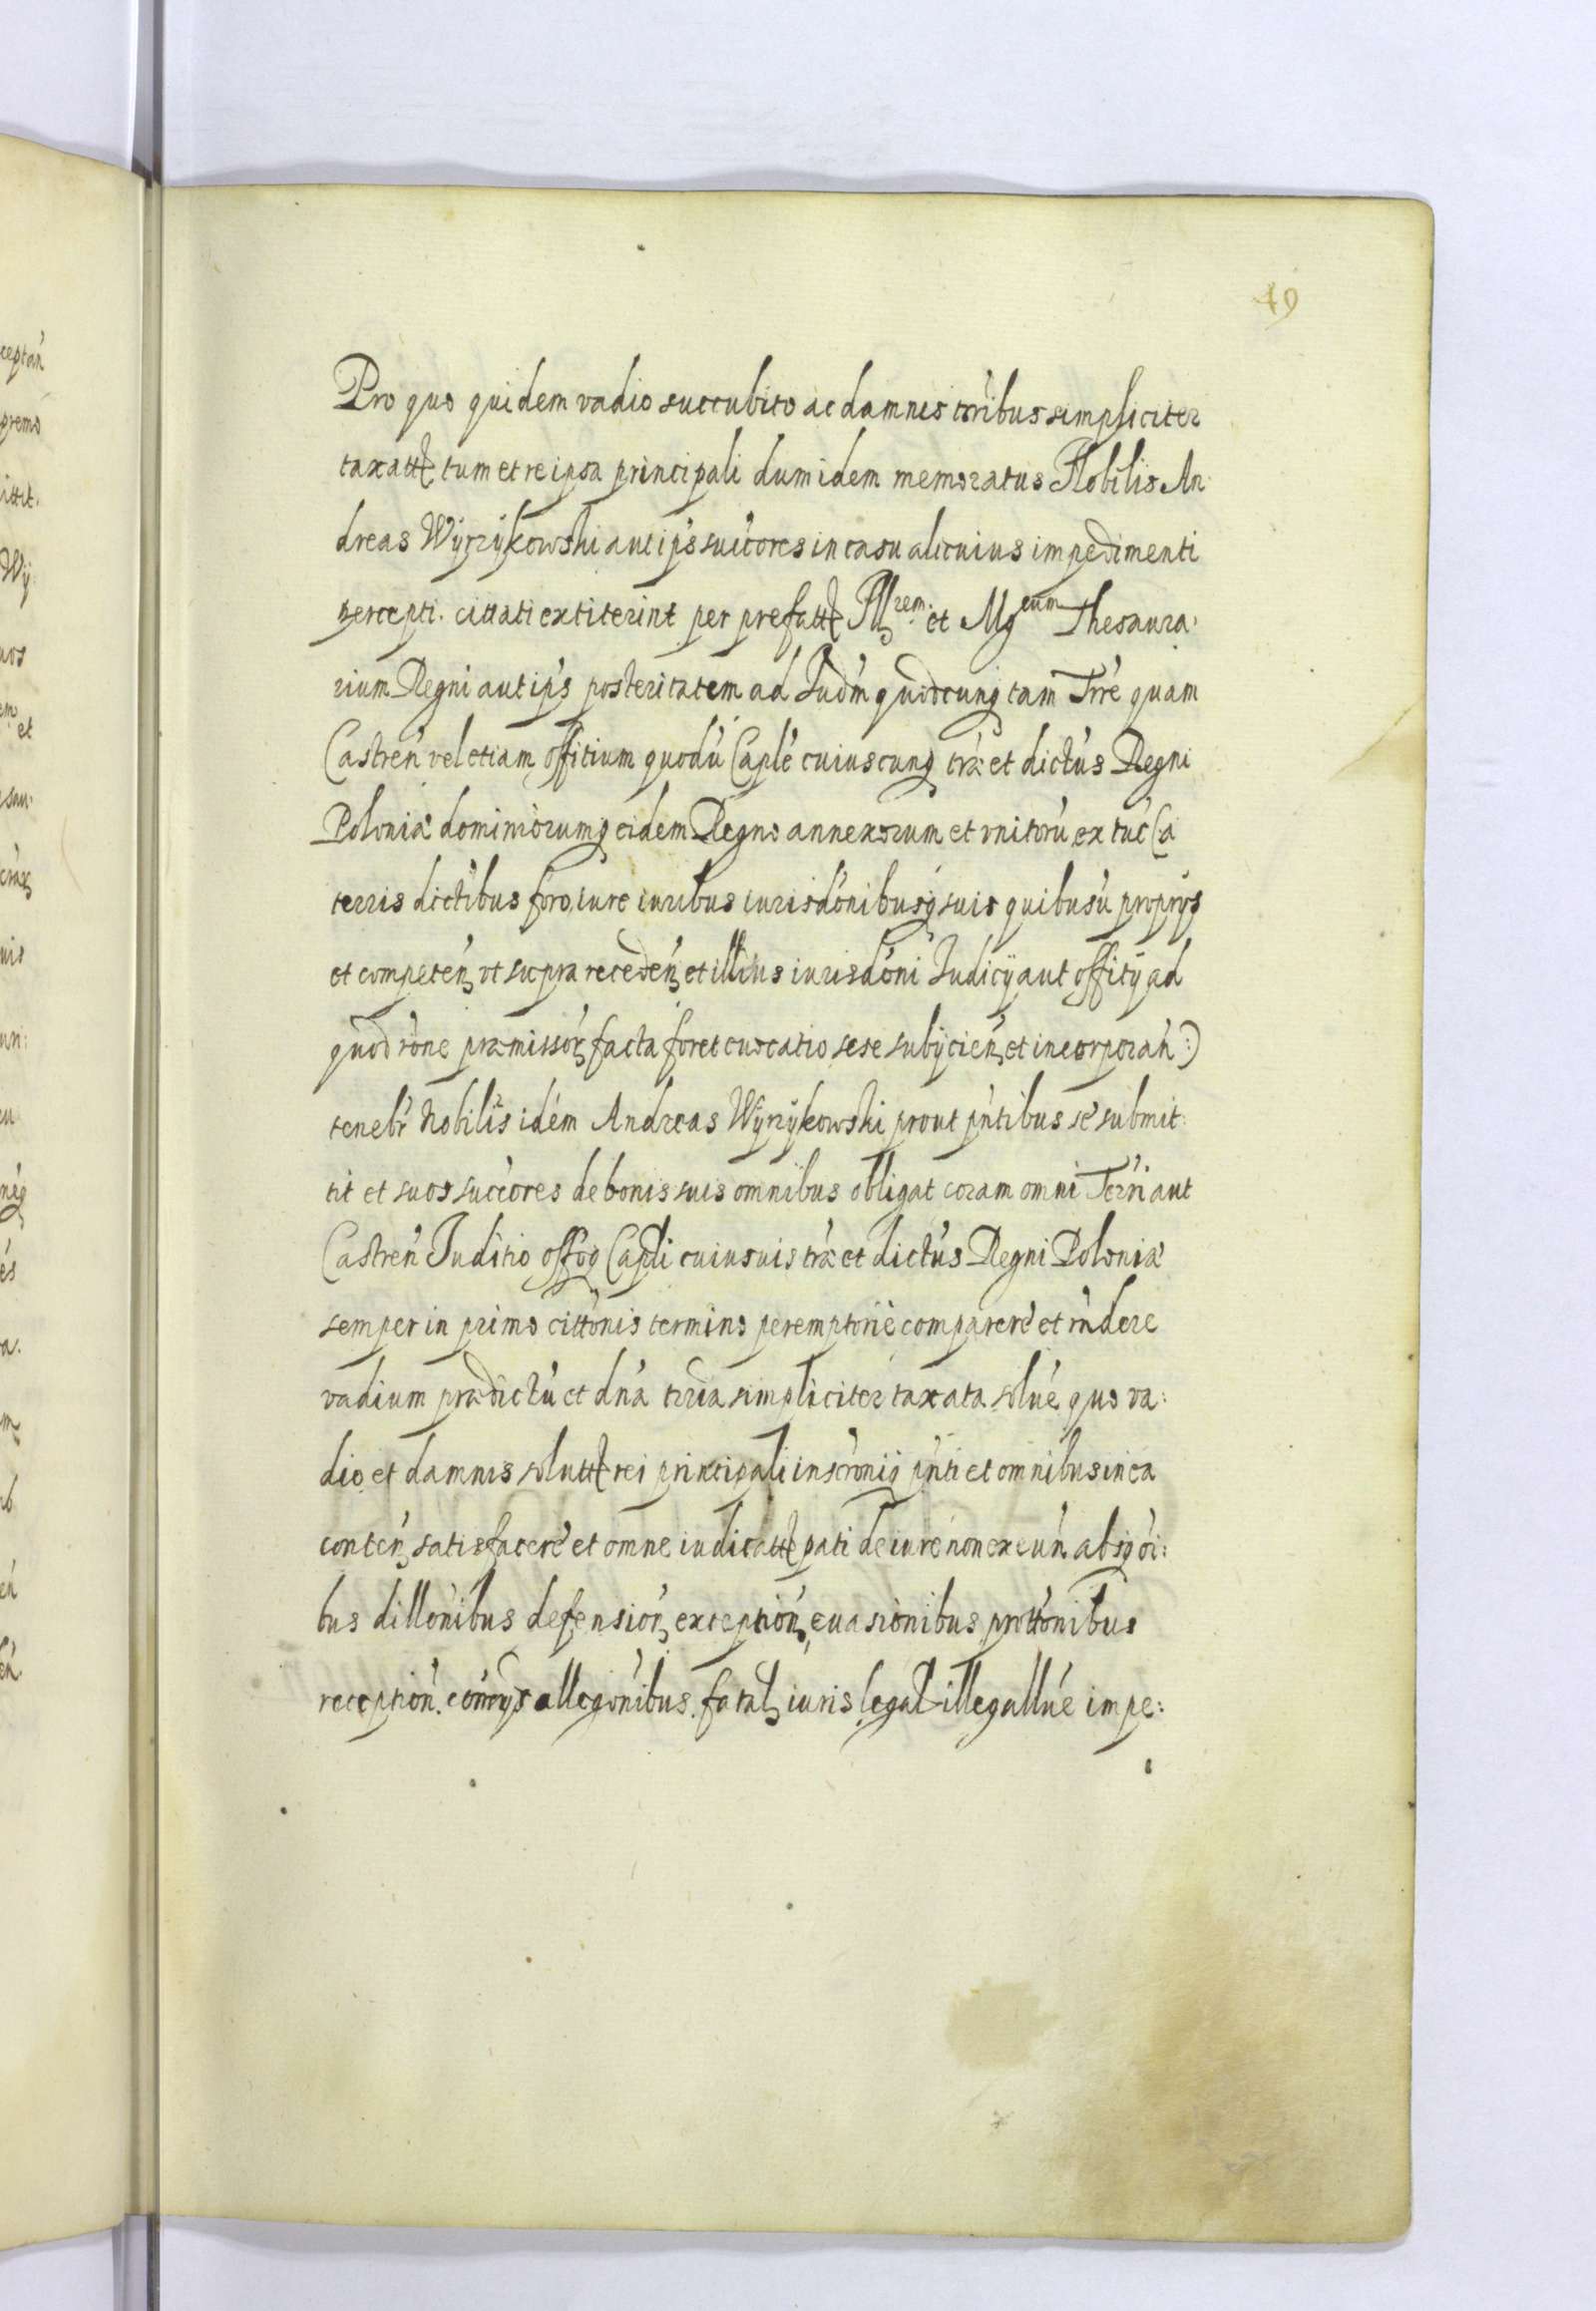 49
Pro quo quidem vadio succubito ac damnis trribus simpliciter
taxatt tum et re ipsa principali dum idem memoratus Nobilis An
dreas Wÿrzÿkowski aut ips succores in casu alicuius impedimenti
percepti. cittati extiterint per prefatt Illrem. et Mgcum Thesaura
rium Regni aut ips posteritatem ad Judm quodcunq tam Trre quam
Castren vel etiam offitium quodu Caple cuiuscunq træ et dictus Regni
Poloniæ dominiorumq eidem Regno annexorum et vnitoru ex tuc (a
terris dictibus foro, iure iuribus iurisdonibusq suis quibusu proprijs
et competen vt supra receden et illius iurisdoni Judicÿ aut offitÿ ad
quod rone præmissor facta foret euocatio sese subÿcien et incorporan:)
tenebr Nobilis idem Andreas Wÿrzÿkowski prout pntibus se submit:
tit et suos succores de bonis suis omnibus obligat coram omni Terri aut
Castren Juditio offoq Capli cuiusuis træ et dictus Regni Poloniæ
semper in primo cittonis termino peremptorie comparere et rndere
vadium prædictu et dna trria simpliciter taxata solue quo va:
dio et damnis solutt rei principali inscronii pnti et omnibus in ea
conten satisfacere et omne iudicatt pati de iure non exeun absq oi:
bus dillonibus defension exception, euasionibus prottonibus
reception. allegonibus. fatal iuris legal illegallue impe: